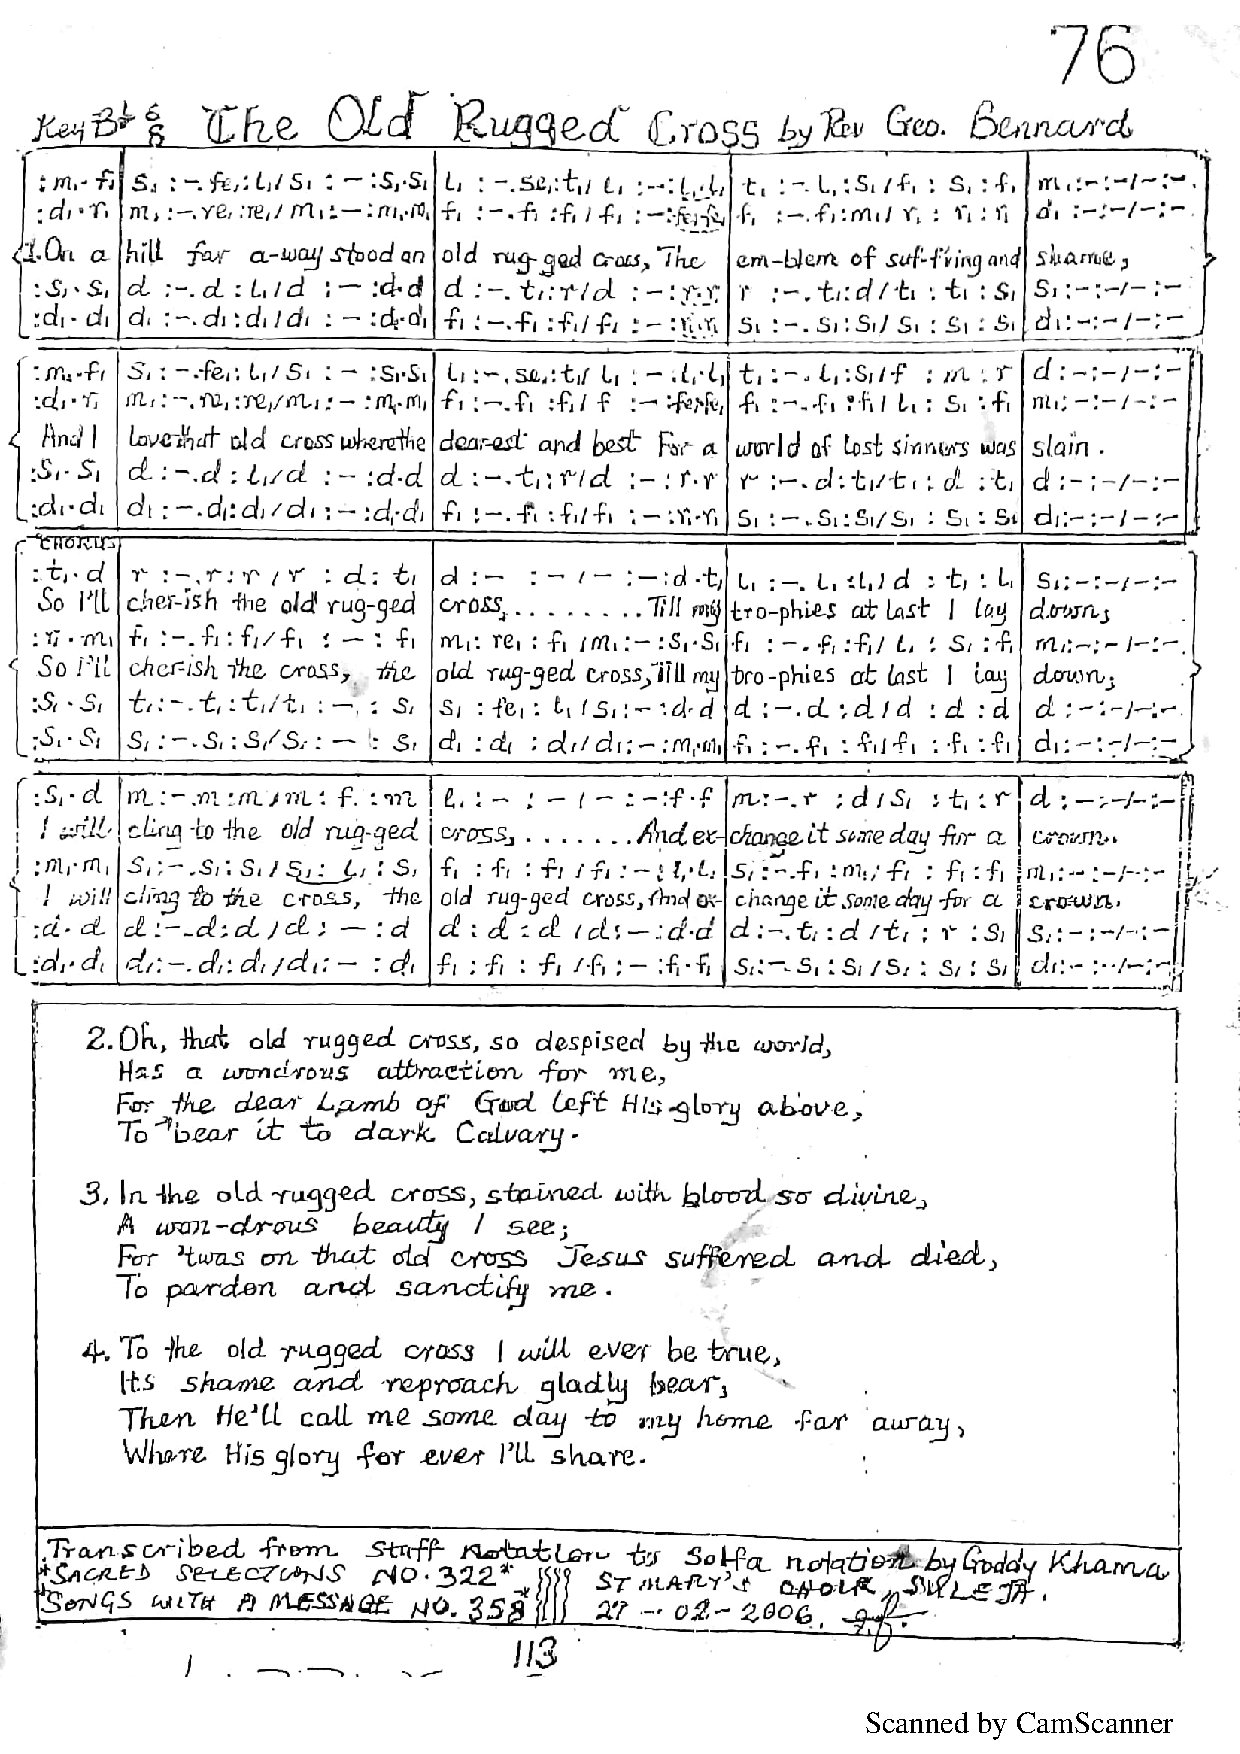 76
Key B♭ 6/8 The Old Rugged Cross by Rev Geo. Bennard
:m₁.f₁ | s₁ :-.fe₁:l₁/s₁ :-:s₁.s₁ | l₁ :-.se₁:t₁/l₁ :-:l₁.l₁ | t₁ :-.l₁:s₁/f₁ : s₁ : f₁ | m₁:-:-/-:-
:d₁.r₁ | m₁:-.re₁:re₁/m₁:-:m₁.m₁ | f₁ :-.f₁:f₁/f₁ :-:fe₁.fe₁ | f₁ :-.f₁:m₁/r₁ : r₁ : r₁ | d₁ :-:-/-:-
1.On a | hill far a-way stood an | old rug-ged cross, The | em-blem of suf-f'ring and | shame,
:s₁.s₁ | d :-.d : l₁/d :-:d.d | d :-.t₁:r/d :-:r.r | r :-.t₁:d/t₁ : t₁ : s₁ | s₁:-:-/-:-
:d₁.d₁ | d₁ :-.d₁:d₁/d₁ :-:d₁.d₁ | f₁ :-.f₁:f₁/f₁ :-:r₁.r₁ | s₁ :-.s₁:s₁/s₁ : s₁ : s₁ | d₁:-:-/-:-
:m₁.f₁ | s₁ :-.fe₁:l₁/s₁ :-:s₁.s₁ | l₁:-.se₁:t₁/l₁ :-:l₁.l₁ | t₁ :-.l₁:s₁/f : m : r | d :-:-/-:-
:d₁.r₁ | m₁:-.re₁:re₁/m₁:-:m₁.m₁ | f₁ :-.f₁ :f₁/f :-:fe₁.fe₁ | f₁ :-.f₁:f₁/l₁ : s₁ : f₁ | m₁:-:-/-:-
And I | love that old cross where the | dearest and best For a | world of lost sinners was | slain.
:s₁.s₁ | d :-.d : l₁/d :-:d.d | d :-.t₁:r/d :-:r.r | r :-.d:t₁/t₁ : d : t₁ | d :-:-/-:-
:d₁.d₁ | d₁ :-.d₁:d₁/d₁:-:d₁.d₁ | f₁ :-.f₁:f₁/f₁ :-:r₁.r₁ | s₁ :-.s₁:s₁/s₁ : s₁ : s₁ | d₁:-:-/-:-
CHORUS
:t₁.d | r :-.r:r/r : d : t₁ | d :- :-/- :-:d.t₁ | l₁ :-.l₁:l₁/d : t₁ : l₁ | s₁:-:-/-:-
So I'll | cher-ish the old rug-ged | cross,........Till my | tro-phies at last I lay | down;
:r₁.m₁ | f₁ :-.f₁:f₁/f₁ :-: f₁ | m₁: re₁ : f₁/m₁:-:s₁.s₁ | f₁ :-.f₁:f₁/l₁ : s₁ : f₁ | m₁:-:-/-:-
So I'll | cher-ish the cross, the | old rug-ged cross, Till my | tro-phies at last I lay | down;
:s₁.s₁ | t₁:-.t₁:t₁/t₁ :-: s₁ | s₁ : fe₁ : l₁/s₁:-:d.d | d :-.d:d/d : d : d | d :-:-/-:-
:s₁.s₁ | s₁:-.s₁:s₁/s₁ :-: s₁ | d₁ : d₁ : d₁/d₁:-:m₁.m₁ | f₁ :-.f₁:f₁/f₁ : f₁ : f₁ | d₁:-:-/-:-
:s₁.d | m :-.m:m/m : f : m | l :- :-/- :-:f.f | m:-.r : d/s₁ : t₁ : r | d :-:-/-:-
I will | cling to the old rug-ged | cross,.......And ex- | change it some day for a | crown.
:m₁.m₁ | s₁:-.s₁:s₁/s₁ : l₁ : s₁ | f₁ : f₁ : f₁/f₁ :-:l₁.l₁ | s₁:-.f₁:m₁/f₁ : f₁ : f₁ | m₁:-:-/-:-
I will | cling to the cross, the | old rug-ged cross, And ex- | change it some day for a | crown.
:d.d | d :-.d:d/d :-:d | d : d : d/d:-:d.d | d:-.t₁:d/t₁ : r : s₁ | s₁:-:-/-:-
:d₁.d₁ | d₁:-.d₁:d₁/d₁:-: d₁ | f₁ : f₁ : f₁/f₁ :-:f₁.f₁ | s₁:-.s₁:s₁/s₁ : s₁ : s₁ | d₁:-:-/-:-
2. Oh, that old rugged cross, so despised by the world,
Has a wondrous attraction for me,
For the dear Lamb of God left His glory above,
To bear it to dark Calvary.
3. In the old rugged cross, stained with blood so divine,
A won-drous beauty I see;
For 'twas on that old cross Jesus suffered and died,
To pardon and sanctify me.
4. To the old rugged cross I will ever be true,
Its shame and reproach gladly bear,
Then He'll call me some day to my home far away,
Where His glory for ever I'll share.
Transcribed from staff notation to Solfa notation by Goddy Khama
*SACRED SELECTIONS NO.322* ST MARY'S CHOIR, SULEJA.
*SONGS WITH A MESSAGE NO.358* 27-02-2006.
113
Scanned by CamScanner